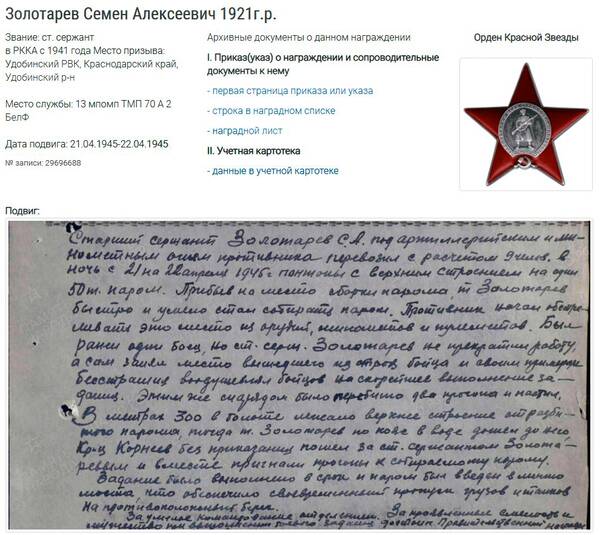 Золотарев Семен Алексеевич 1921г.р.
Звание: ст. сержант
в РККА с 1941 года Место призыва:
Удобинский РВК, Краснодарский край,
Удобинский р-н
Место службы: 13 мпомп ТМП 70 А 2
БелФ
Дата подвига: 21.04.1945-22.04.1945
№ записи: 29696688
Архивные документы о данном награждении
I. Приказ(указ) о награждении и сопроводительные
документы к нему
- первая страница приказа или указа
- строка в наградном списке
- наградной лист
II. Учетная картотека
- данные в учетной картотеке
Орден Красной Звезды
Подвиг:
Старший сержант Золотарев С.А. под артиллерийским и ми-
нометным огнем противника перевозил с расчетом 9 чел. в
ночь с 21 на 22 апреля 1945г понтоны с верхним строением на один
50 т. паром. Прибыв на место сборки парома, т Золотарев
быстро и умело стал собирать паром. Противник начал обстре-
ливать это место из орудий, минометов и пулеметов. Был
ранен один боец, но ст. серж. Золотарев не прекратил работу,
а сам занял место вышедшего из строя бойца и своим примером
бесстрашия воодушевлял бойцов на скорейшее выполнение за-
дания. Этим же снарядом было перебито два прогона и настил.
В метрах 300 в болоте лежало верхнее строение
парома, тогда т. Золотарев по в воде дошел до него,
Кр-ц Корнеев без приказания пошел за ст. сержантом Золота-
ревым и вместе пригнали прогоны к собираемому парому.
Задание было выполнено в срок и паром был введен в линию
моста, что обеспечило своевременный пропуск грузов и танков
на противоположный берег.
За умелое командование отделением. За проявленные смелость и
мужество при выполнении боевого задания достоин Правительственной награды